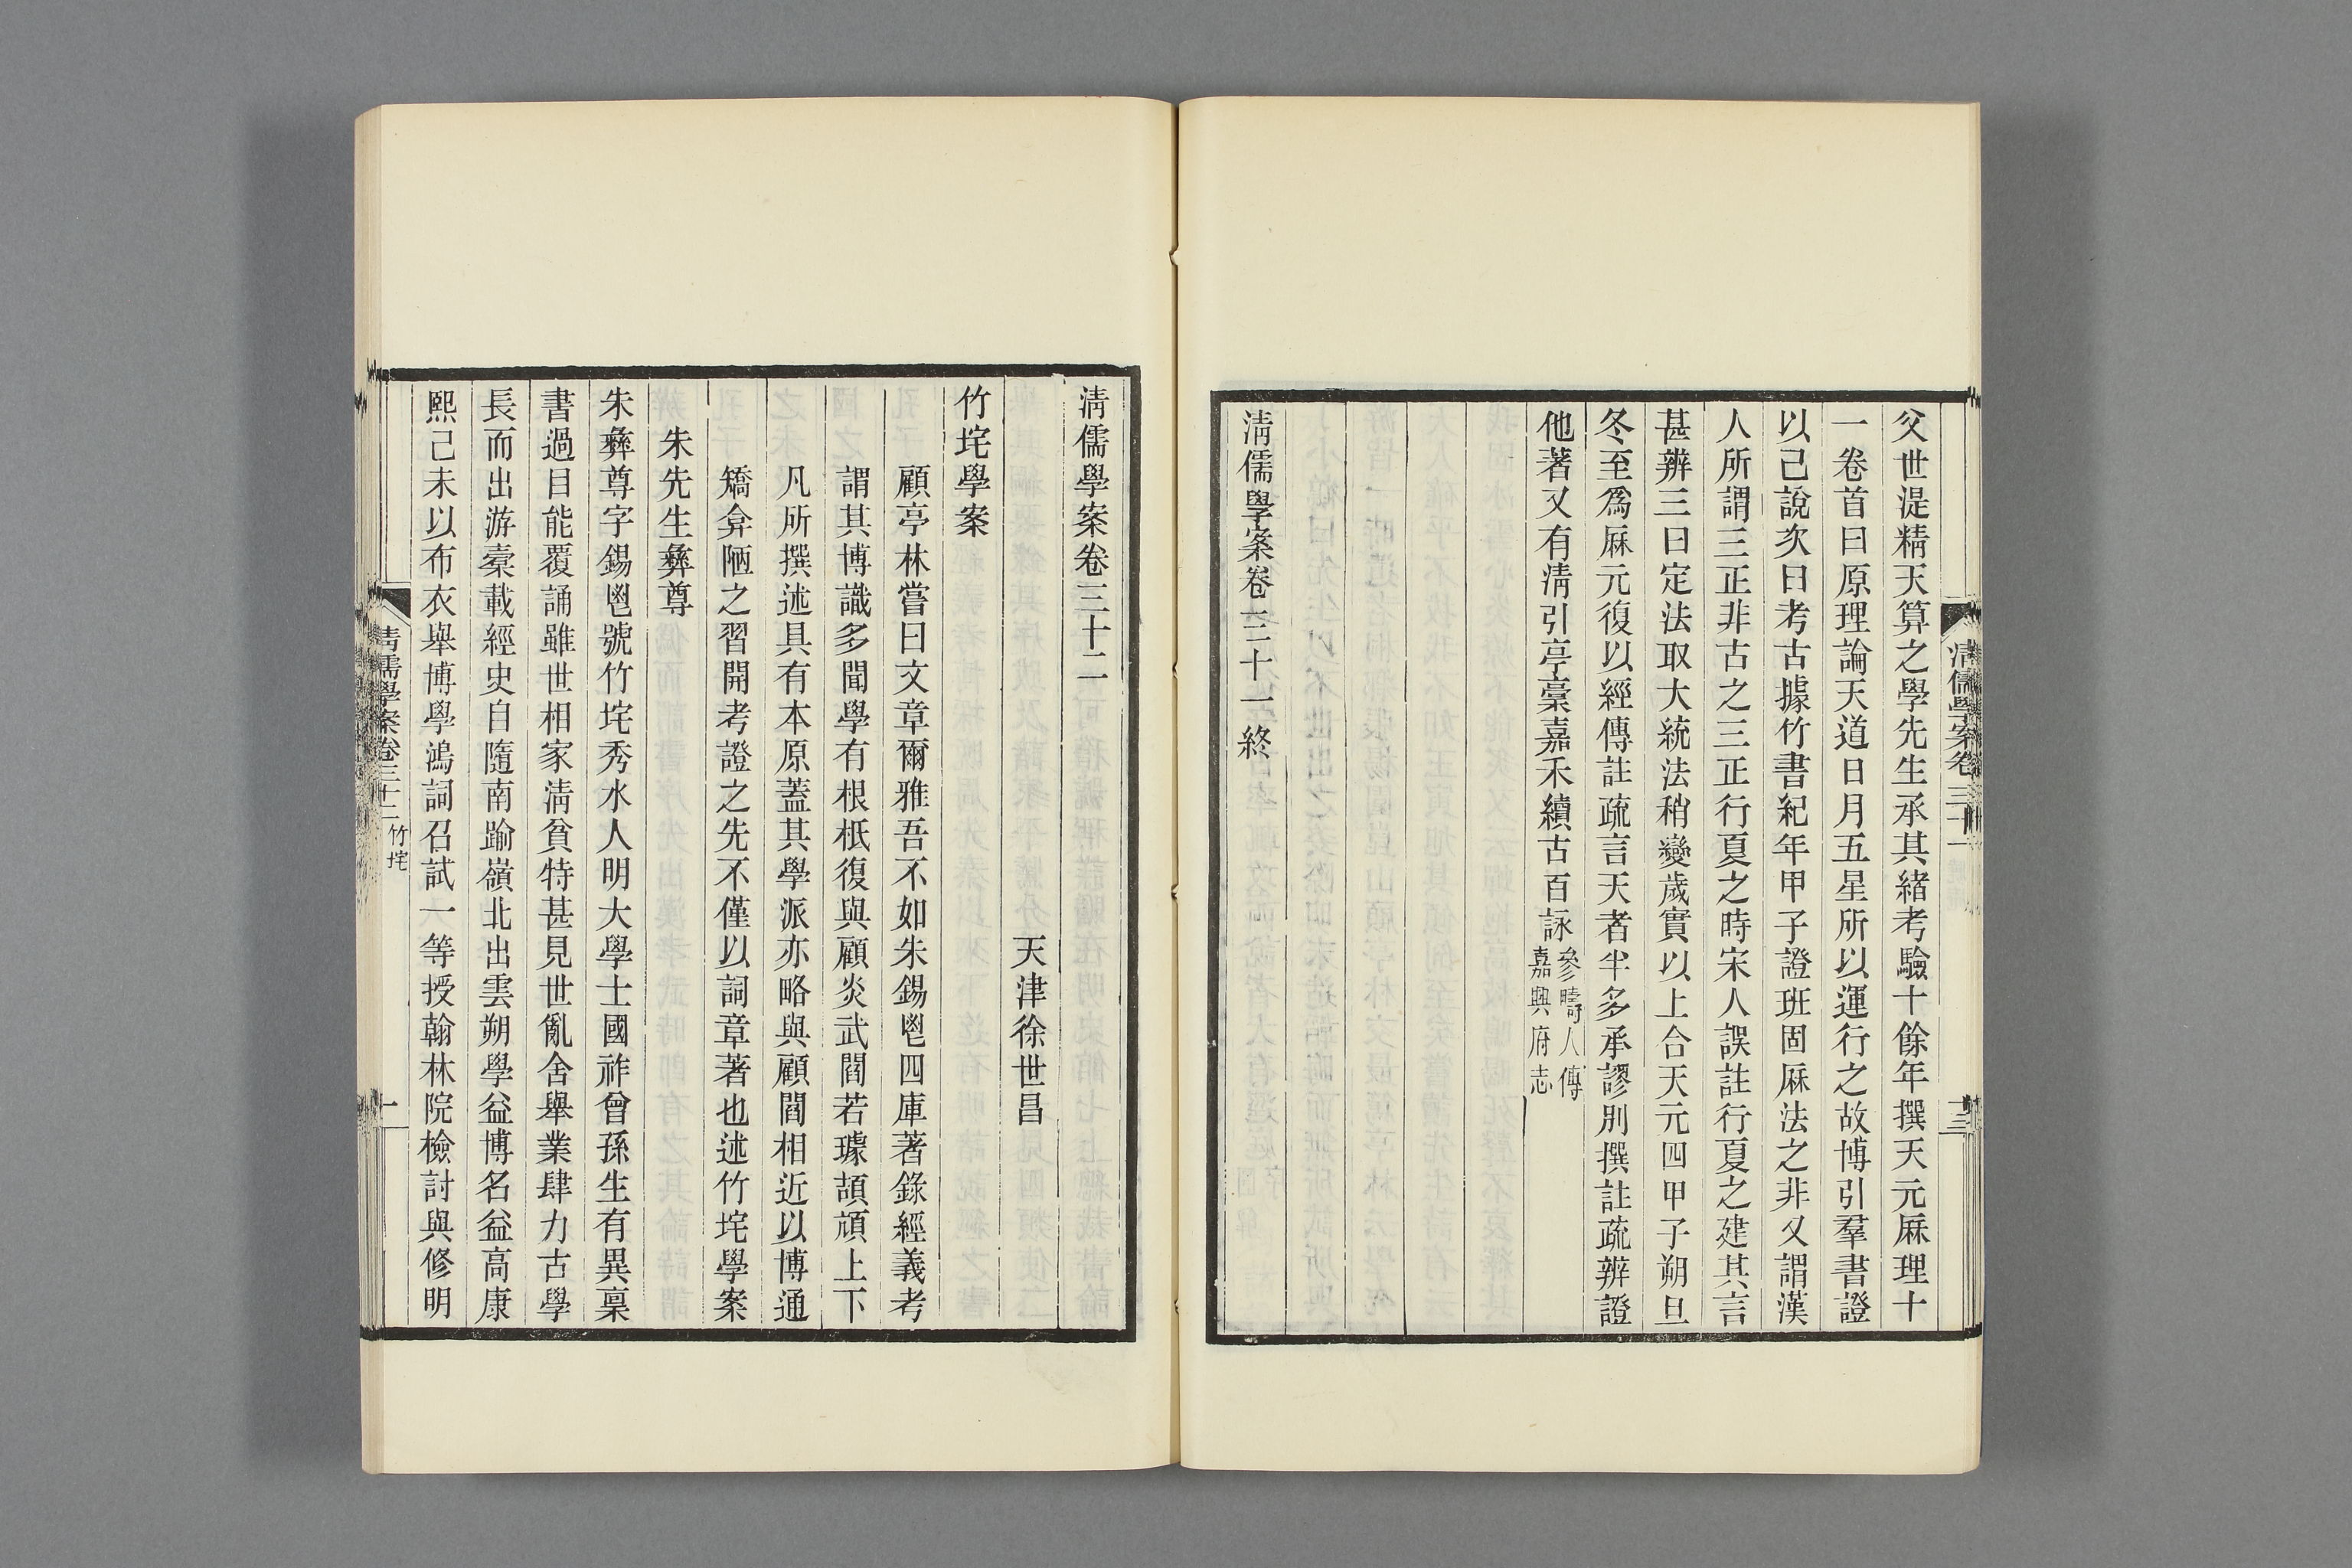 父世湜精天算之學先生承其緒考驗十餘年撰天元厤理十
一卷首曰原理論天道日月五星所以運行之故博引羣書證
以己說次曰考古據竹書紀年甲子證班固厤法之非又謂漢
人所謂三正非古之三正行夏之時宋人誤註行夏之建其言
甚辨三曰定法取大統法稍變歲實以上合天元四甲子朔旦
冬至爲厤元復以經傳註疏言天者半多承謬別撰註疏辨證
他著又有淸引亭稾嘉禾續古百詠參疇人傳
嘉興府志
淸儒學案卷三十一終
淸儒學案卷三十一
十三
淸儒學案卷三十二
天津徐世昌
竹垞學案
顧亭林嘗曰文章爾雅吾不如朱錫鬯四庫著錄經義考
謂其博識多聞學有根柢復與顧炎武閻若璩頡頏上下
凡所撰述具有本原蓋其學派亦略與顧閻相近以博通
矯弇陋之習開考證之先不僅以詞章著也述竹垞學案
朱先生彝尊
朱彝尊字錫鬯號竹垞秀水人明大學士國祚曾孫生有異稟
書過目能覆誦雖世相家淸貧特甚見世亂舍舉業肆力古學
長而出游橐載經史自隨南踰嶺北出雲朔學益博名益高康
熙己未以布衣舉博學鴻詞召試一等授翰林院檢討與修明
淸儒學案卷三十二
竹垞
一